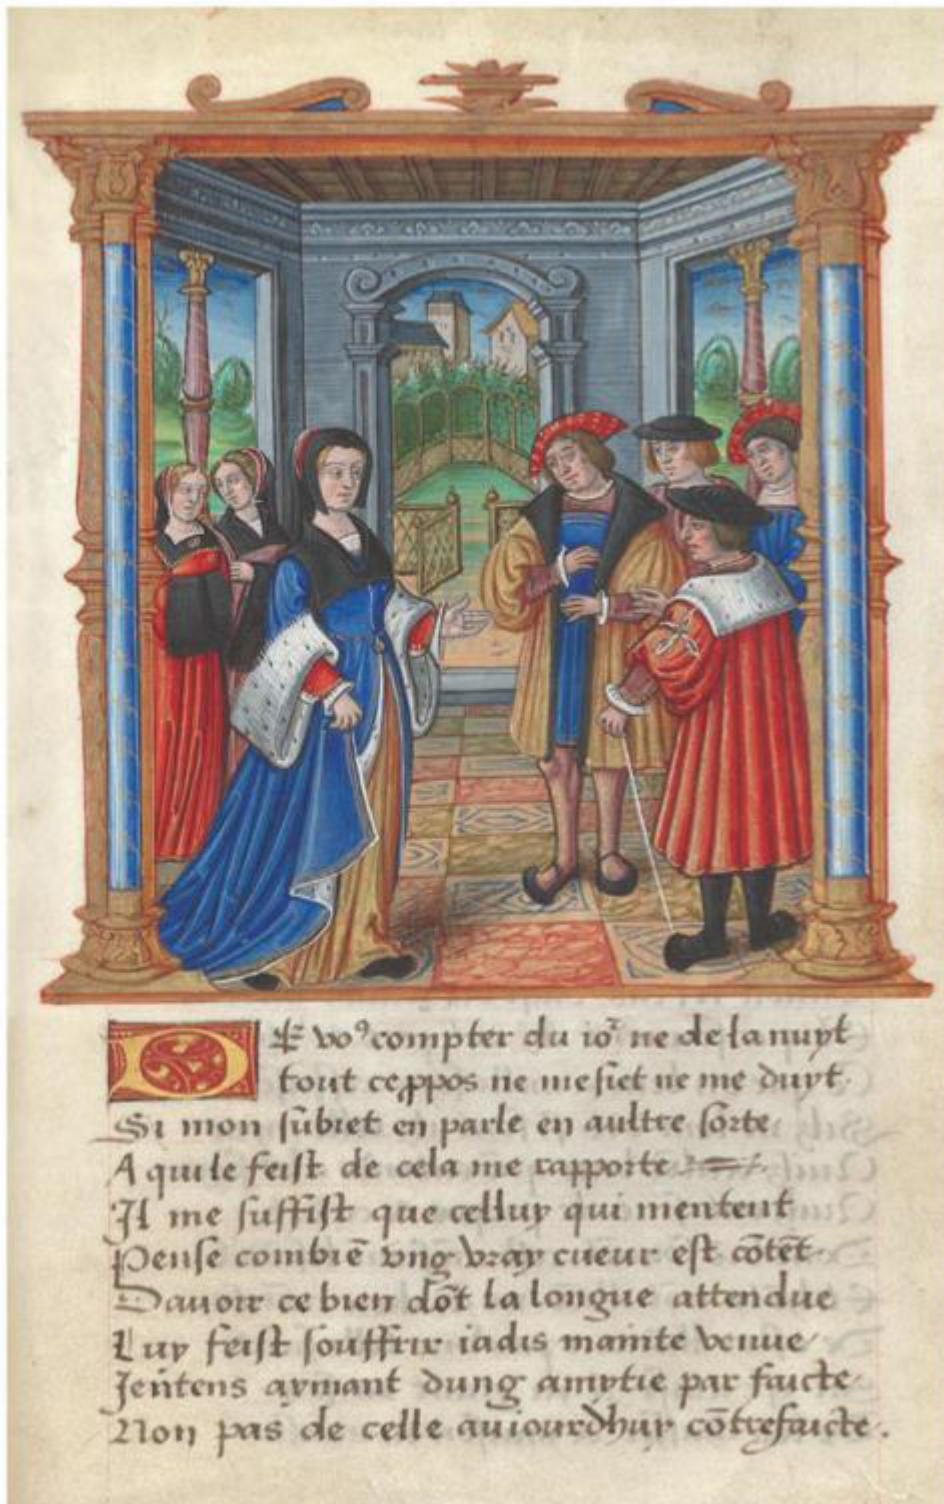 DE voꝰ compter du ioͬ ne de la nuyt
tout ce ꝓpos ne me siet ne me duyt.
Si mon subiet en parle en aultre sorte
A qui le feist de cela me rapporte
Il me suffist que celluy qui mentent
Pense combiē vng vray cueur est cōtēt.
Dauoir ce bien dōt la longue attendue
Luy feist souffrir iadis mainte venue
Jentens aymant dung amytie parfaicte
Non pas de celle auiourdhuy cōtrefaicte.